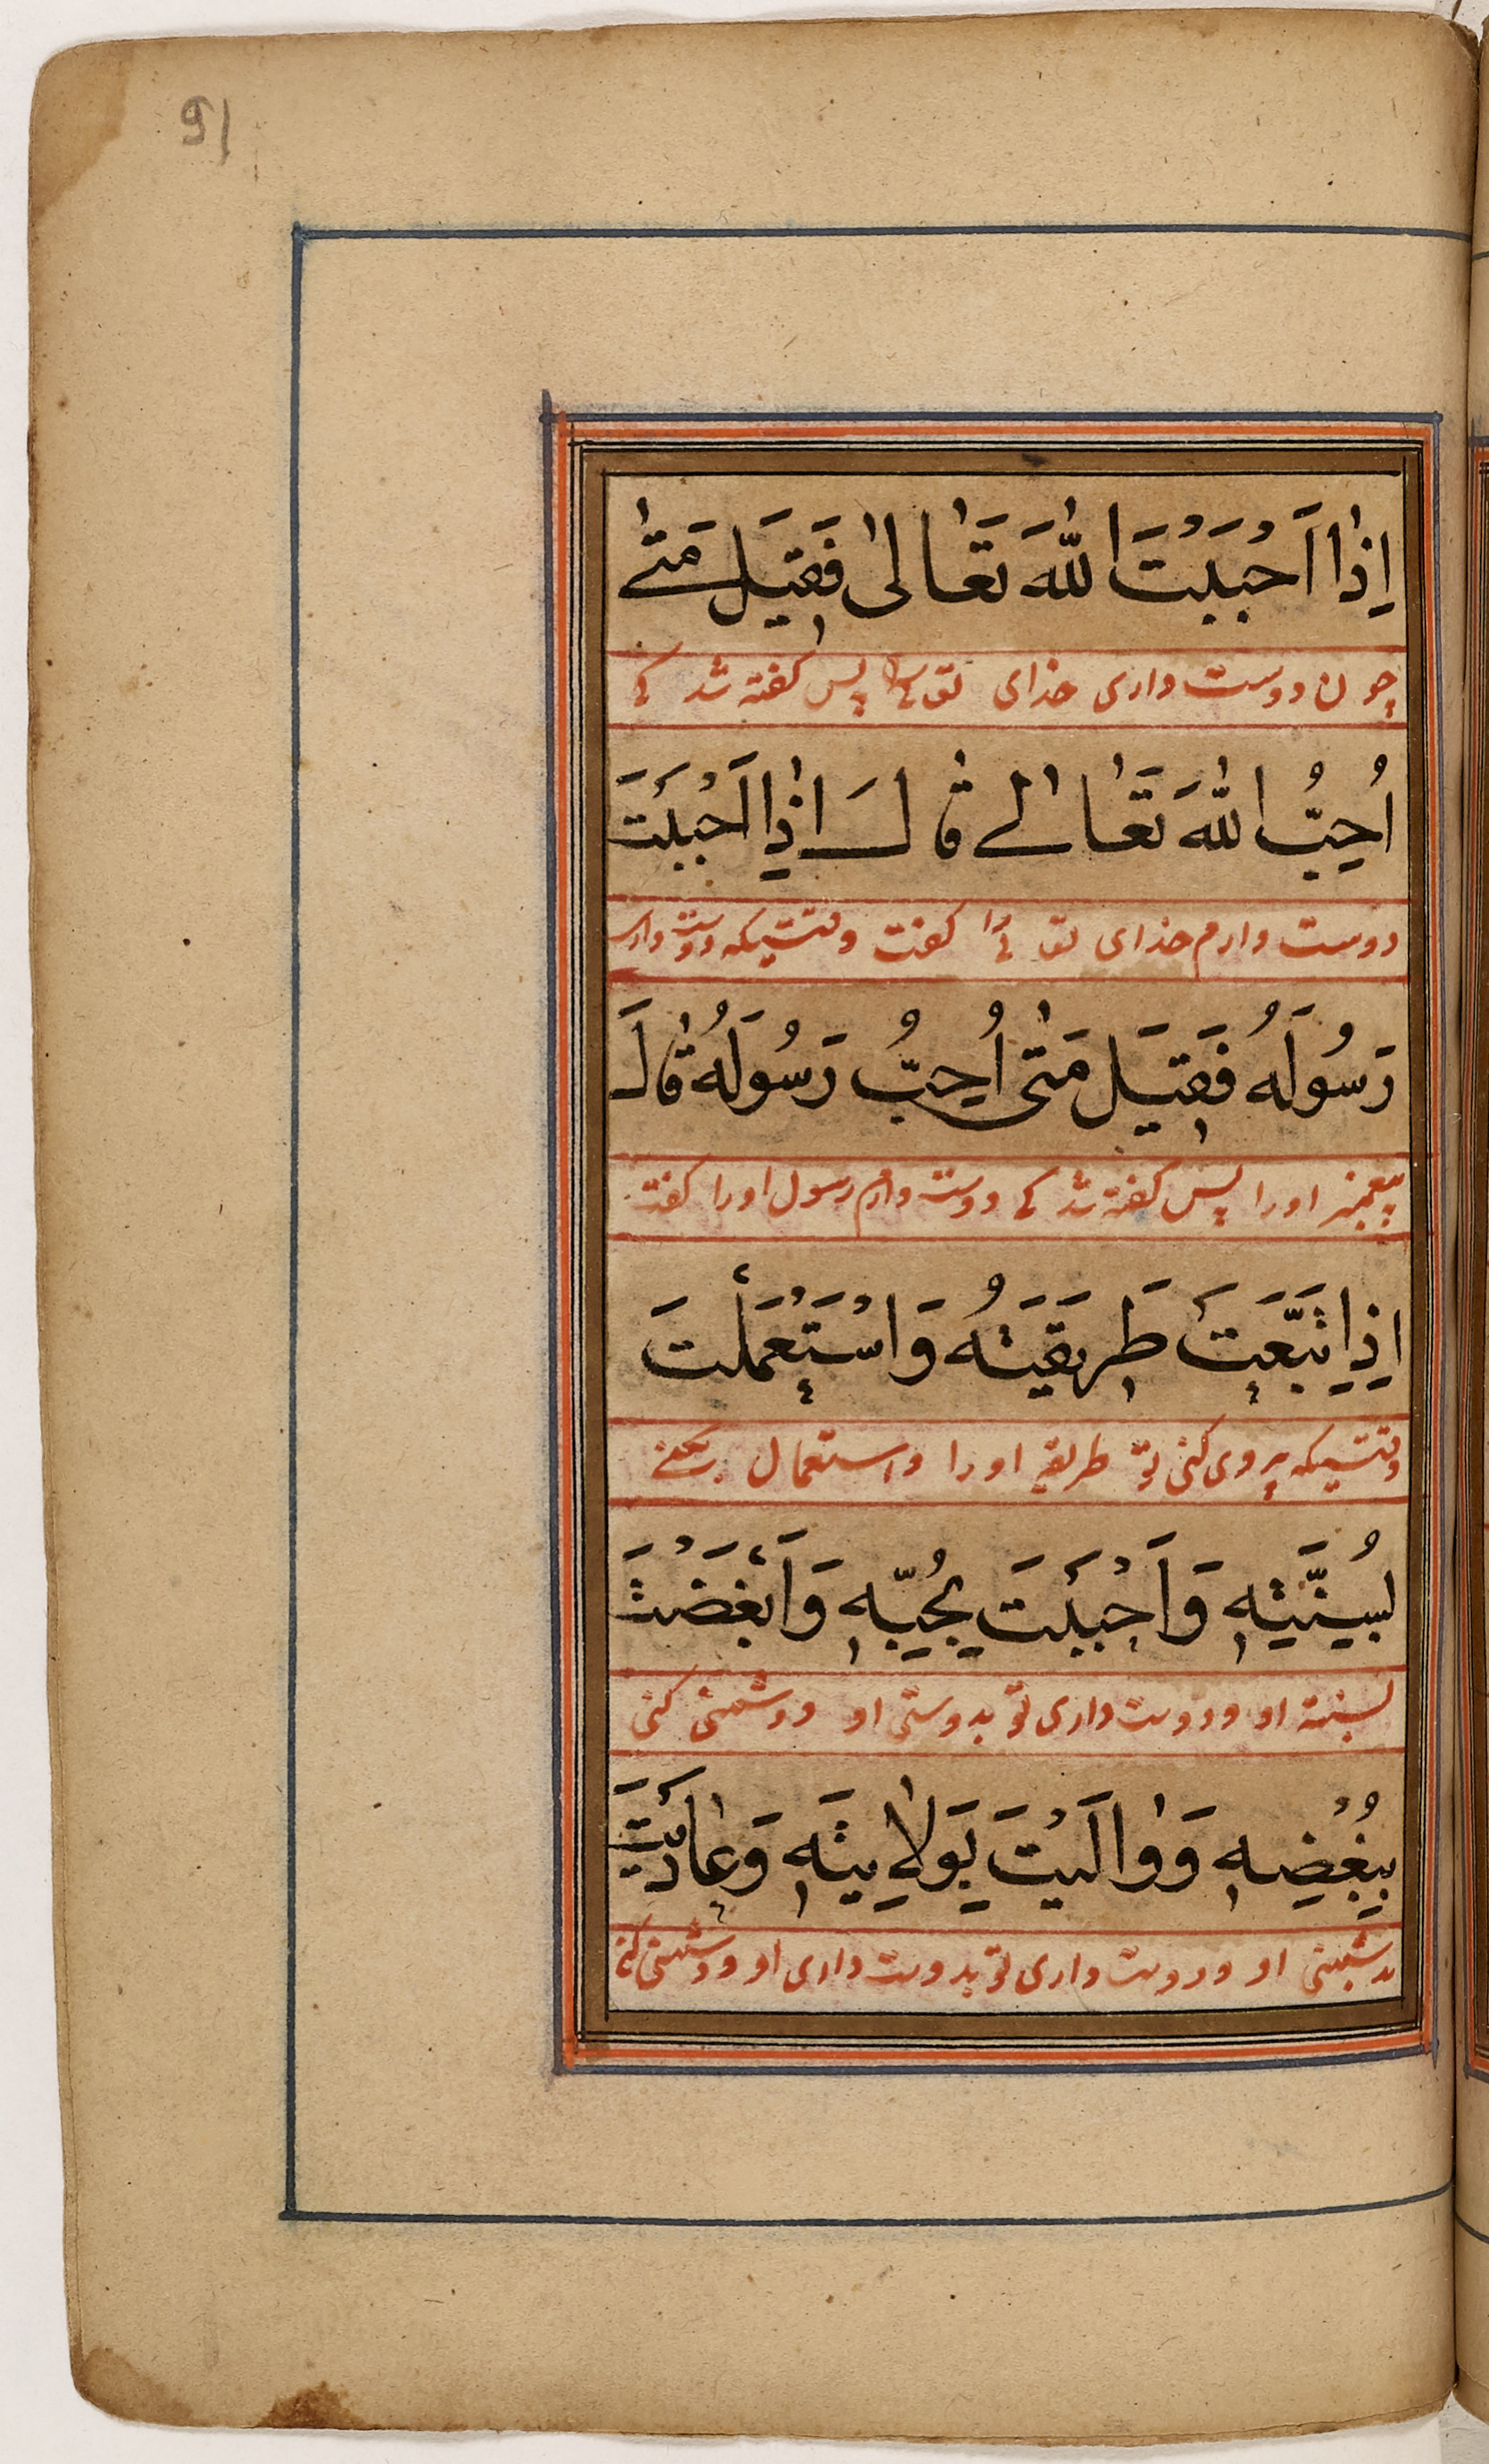 اِذٰا اَحْبَبْتَ اللّٰهَ تَعٰالىٰ فَقِيَل مَتىٰ
چون دوست داری خدای تعالی را پس گفته شد کے
اُحِبُّ اللّٰهَ تَعٰالےٰ قٰالَ اذٰا اَحْبَبْتَ
دوست دارم خدای تع را گفت وقتیکه دوست داری
رَسُولَهُ فَقِيَل مَتىٰ اُحِبُّ رَسُولَهُ قٰالَ
پیغمبر اورا پس گفته شد کے دوست دارم رسول اورا گفت
اِذِاِتَّبَعَتَ طَرِيقَتَهُ وَاسْتَعْمَلْتَ
وقتیکه پیروی کنی تو طریقه اورا و استعمال بکنے
لسُنَّتِهِ وَاَحْبَبْتَ بِحُبِّهِ وَاَبْغَضْتَ
بسنته او و دوست داری تو بدوستی او و دشمنی کنی
بِبُغْضِهِ وَوٰالَيْتَ بِوَلاٰيَتِهِ وَعٰادَيْتَ
بدشمنی او و دوست داری تو بدوست داری او و دشمنی کنی